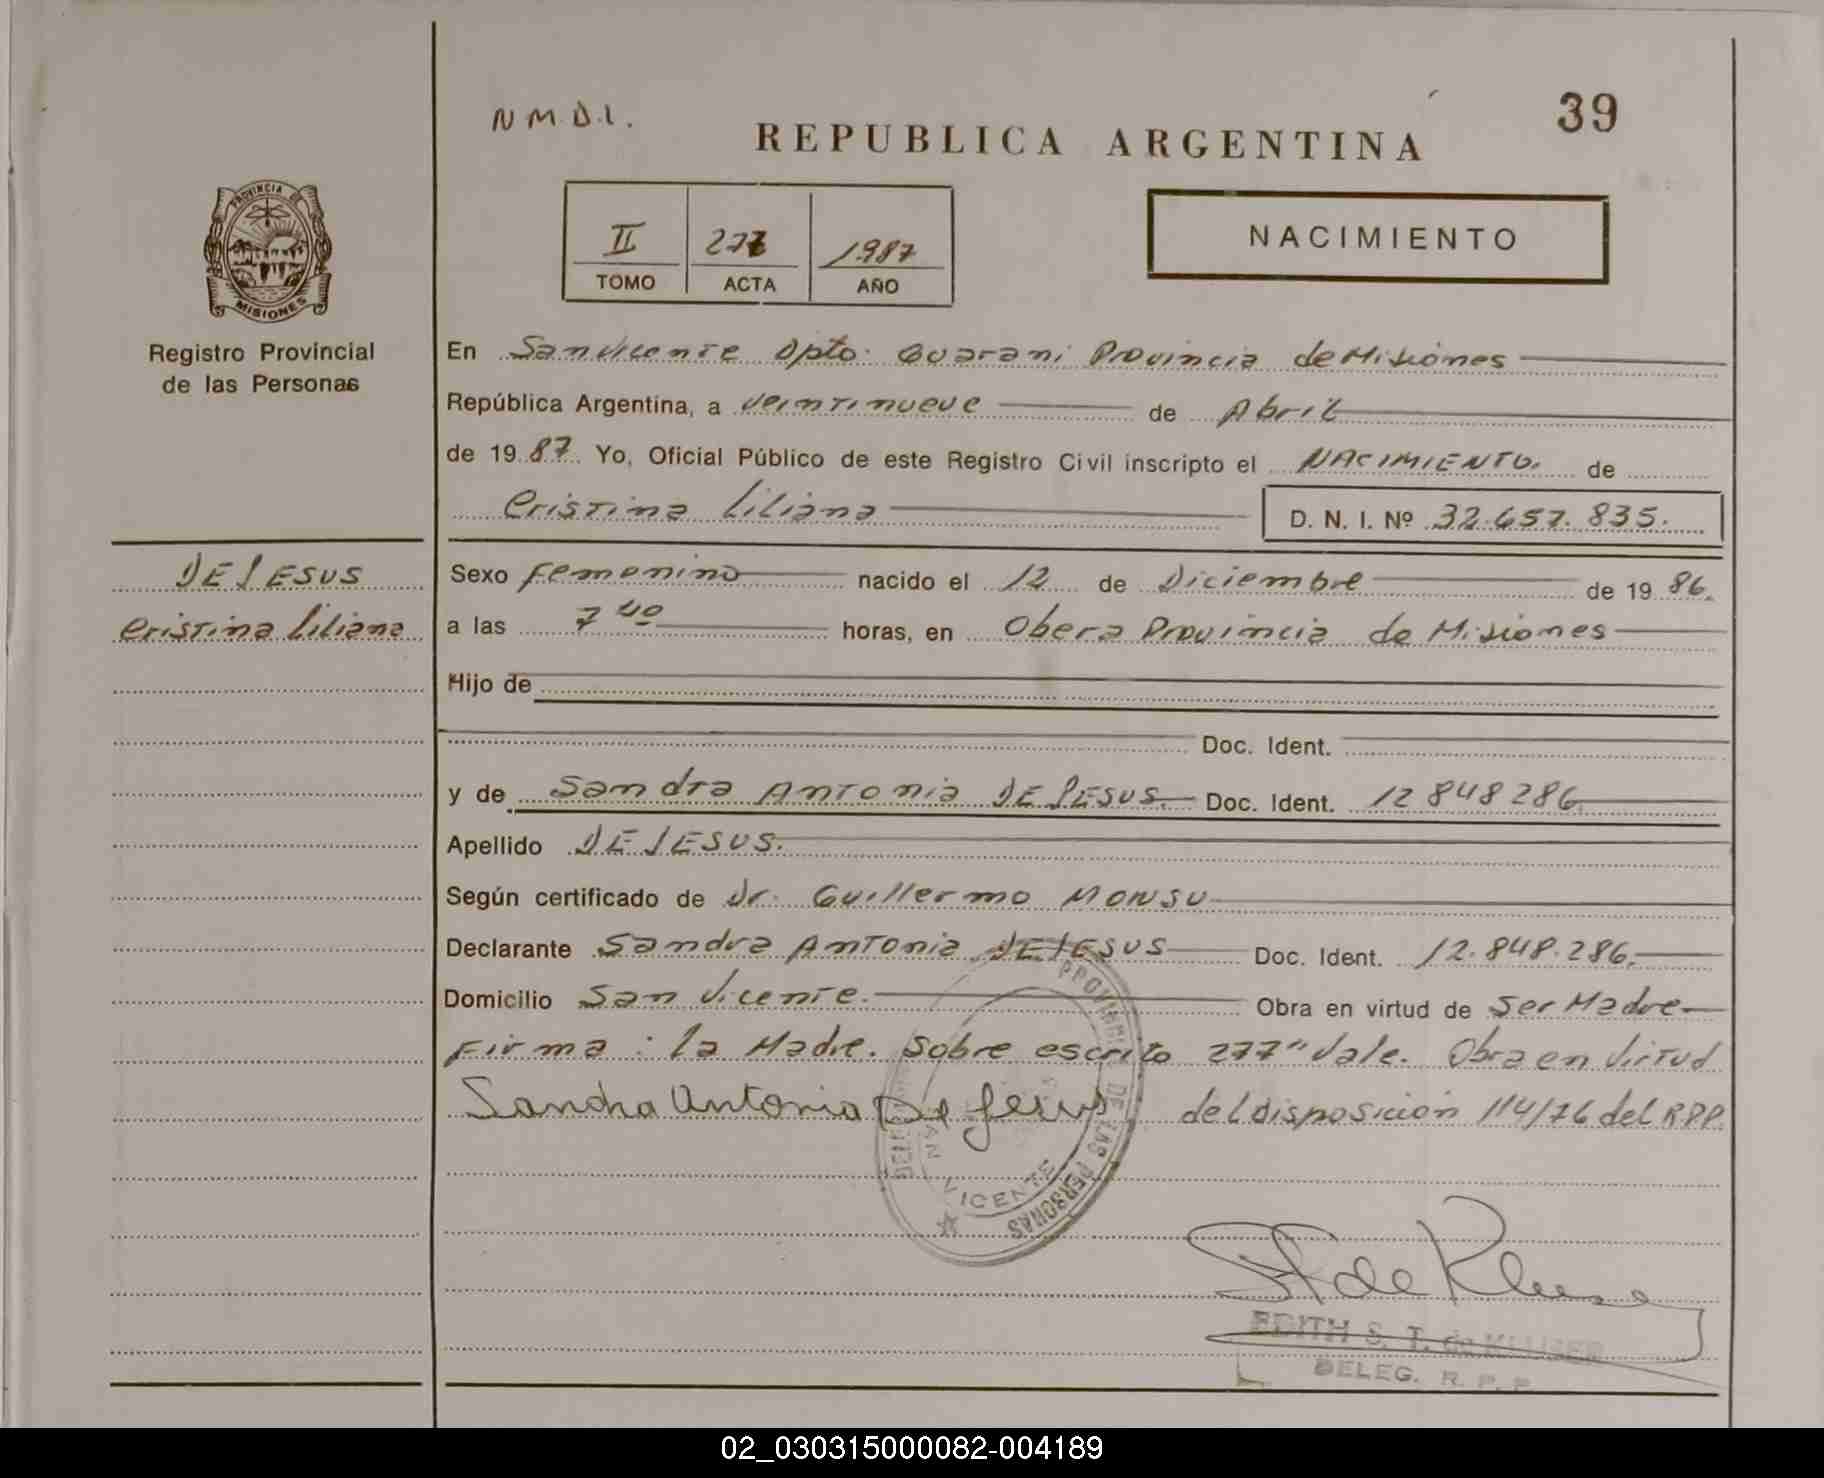 N M D.I.
39
REPUBLICA ARGENTINA
PROVINCIA DE
MISIONES
Registro Provincial
de las Personas
II 277 1987
TOMO ACTA AÑO
NACIMIENTO
En San Vicente Dpto. Guarani Provincia de Misiones
República Argentina, a veintinueve de Abril
de 1987. Yo, Oficial Público de este Registro Civil inscripto el NACIMIENTO. de
Cristina Liliana D. N. I. Nº 32.657.835.
DE JESUS
Cristina Liliana
Sexo Femenino nacido el 12 de Diciembre de 1986.
a las 7 40 horas, en Obera Provincia de Misiones
Hijo de
Doc. Ident.
y de Sandra Antonia DE JESUS. Doc. Ident. 12 848 286.
Apellido DE JESUS.
Según certificado de Dr. Guillermo MONSU
Declarante Sandra Antonia DE JESUS Doc. Ident. 12.848.286.
Domicilio San Vicente. Obra en virtud de Ser Madre
Firma : la Madre. Sobre escrito 277" Vale. Obra en Virtud
Sandra Antonia De Jesus del disposición 114/76 del R.P.P.
PROVINCIAL DE LAS PERSONAS
SAN VICENTE
EDITH S. T. de KLUSER
DELEG. R. P. P.
02_030315000082-004189